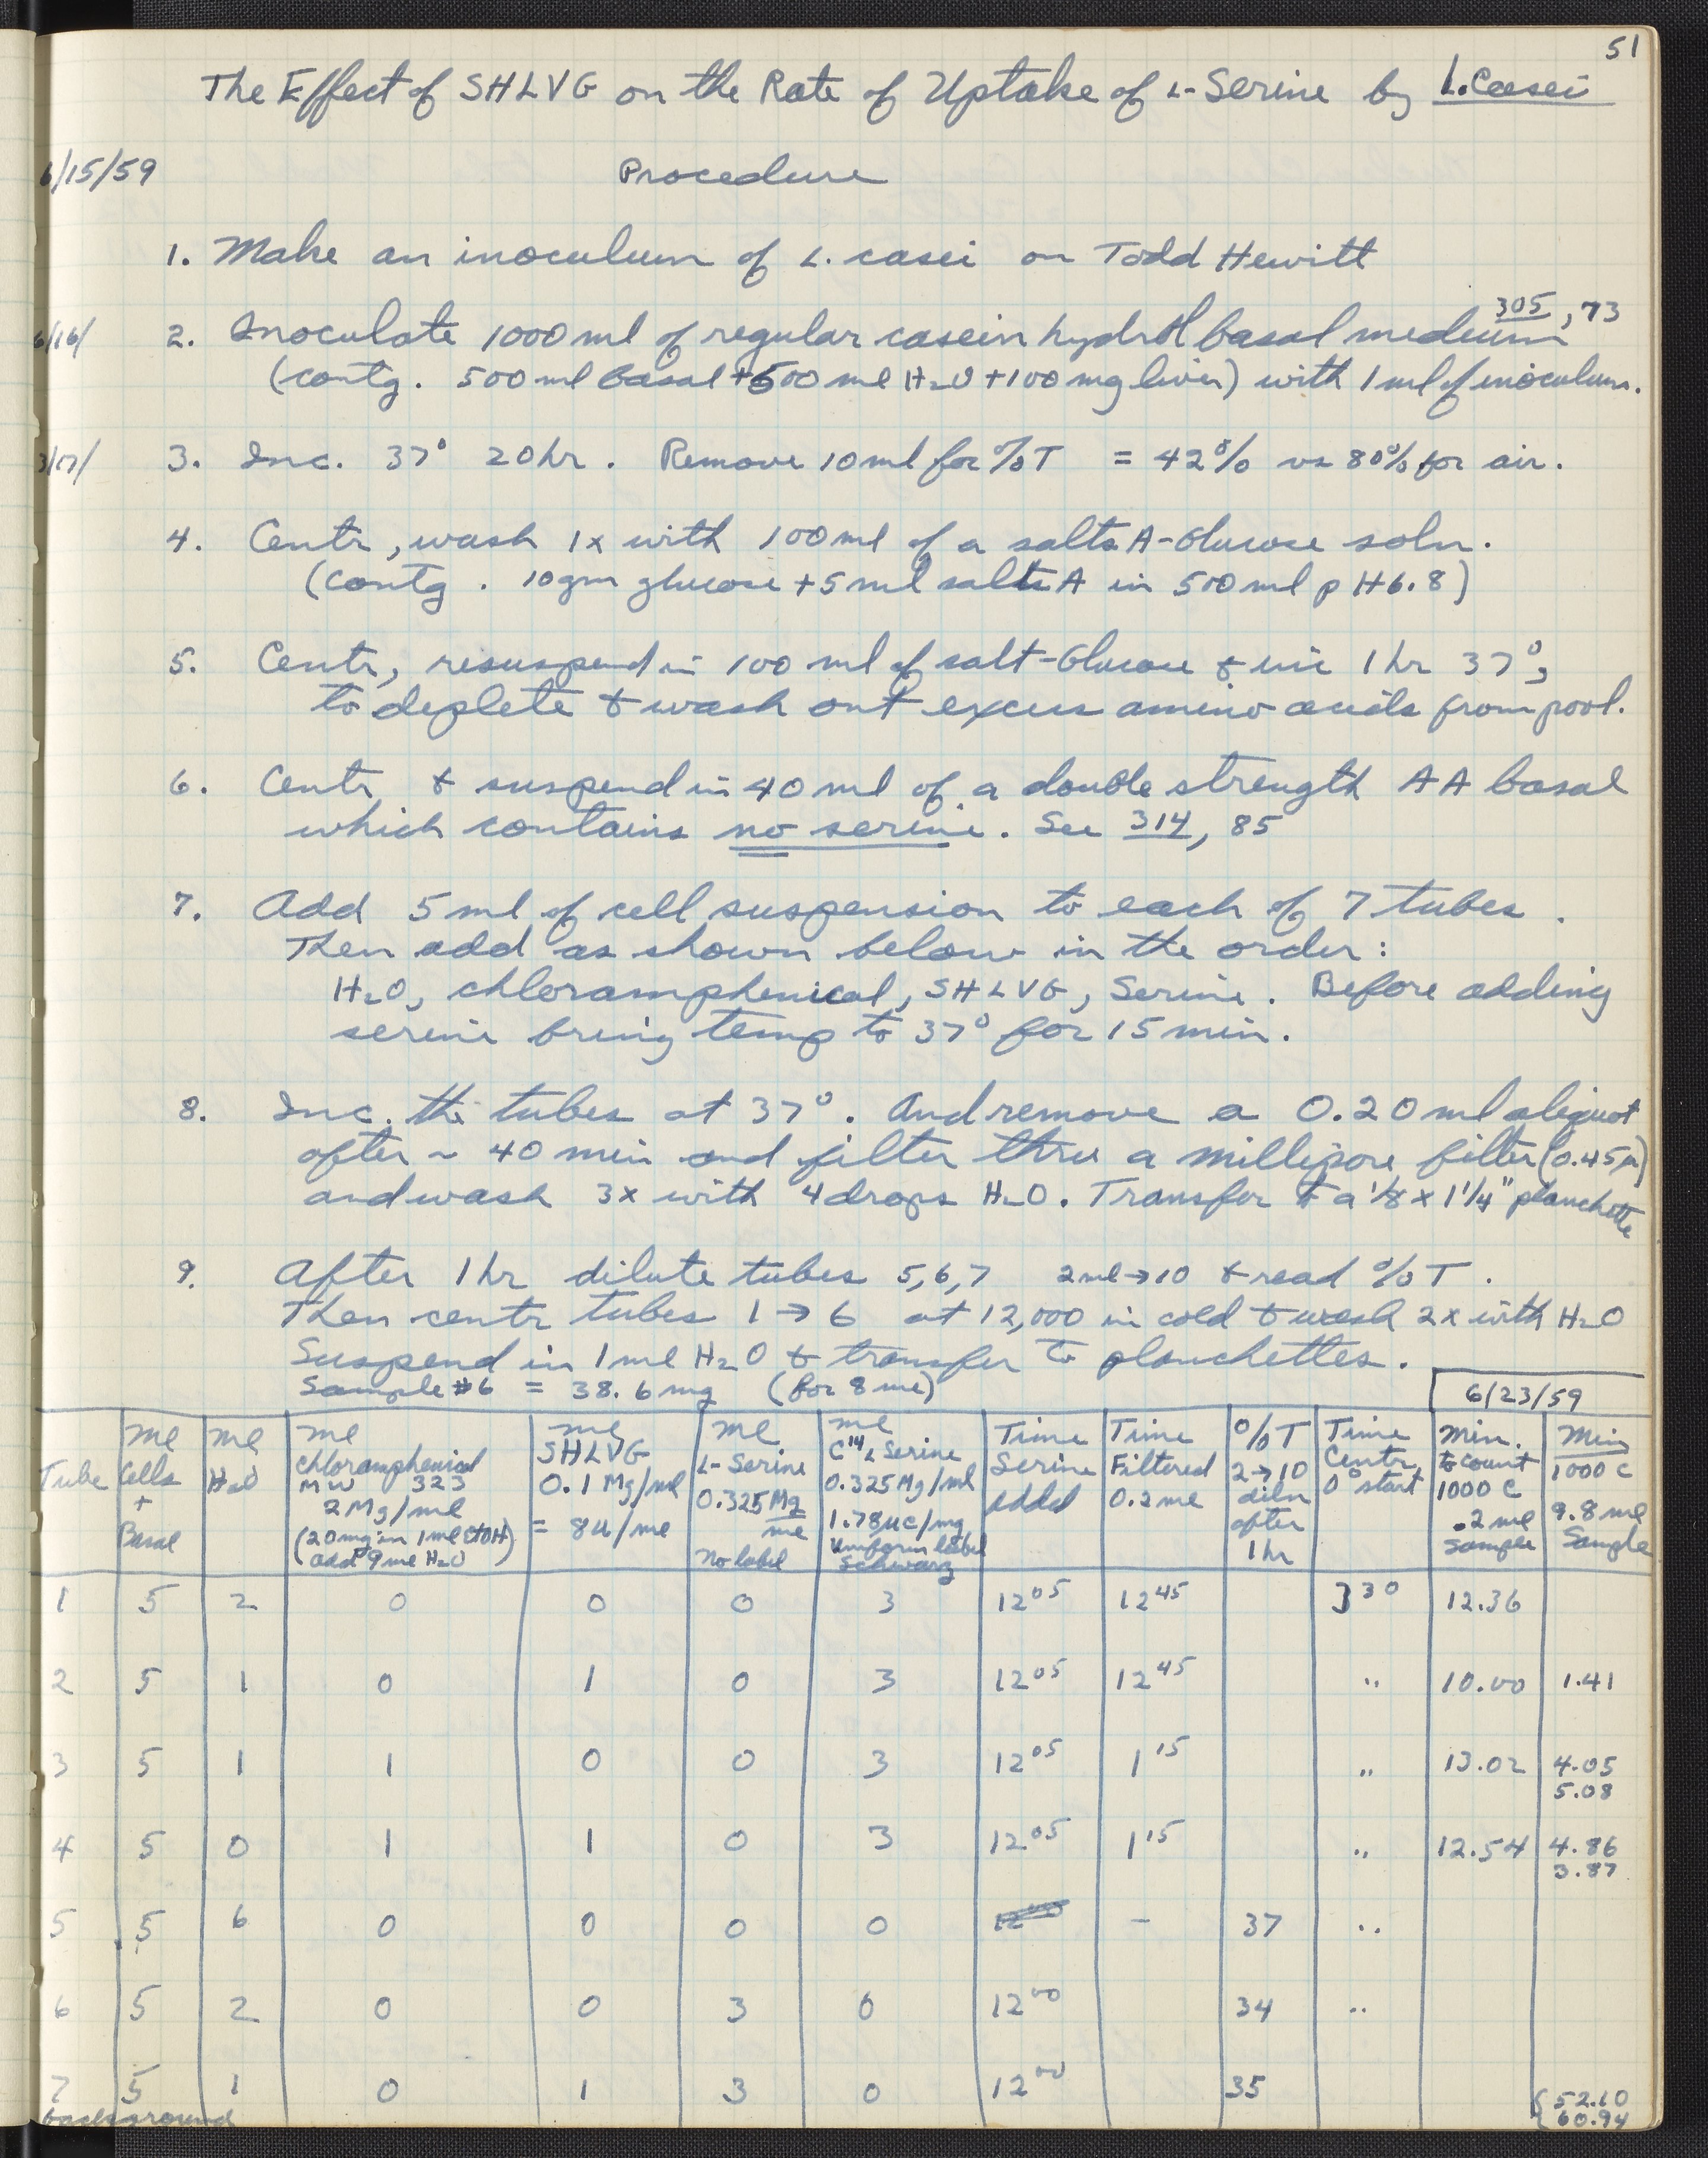 51
The Effect of SHLVG on the Rate of Uptake of L-Serine by L. Casei
6/15/59
Procedure
1. Make an inoculum of L. casei on Todd Hewitt
305, 73
6/16/ 2. Inoculate 1000 ml of regular casein hydrol basal medium
(contg. 500 ml basal + 500 ml H2O + 100 mg liver) with 1 ml of inoculum.
3. Inc. 37° 20 hr. Remove 10 ml for %T = 42% vs 80% for air.
4. Centr, wash 1x with 100 ml of a salts A-Glucose soln.
(contg. 10 gm glucose + 5 ml salts A in 500 ml pH 6.8)
5. Centr, resuspend in 100 ml of salt-Glucose & inc 1 hr 37°,
to deplete & wash out excess amino acids from pool.
6. Centr & suspend in 40 ml of a double strength AA basal
which contains no serine. See 314, 85
7. Add 5 ml of cell suspension to each of 7 tubes.
Then add as shown below in the order:
H2O, chloramphenical, SHLVG, Serine. Before adding
serine bring temp to 37° for 15 min.
8. Inc. the tubes at 37°. And remove a 0.20 ml aliquot
after ~ 40 min and filter thru a millipore filter (0.45µ)
and wash 3x with 4 drops H2O. Transfer to a 1/8 x 1 1/4" planchette
9. After 1 hr dilute tubes 5,6,7 2 ml → 10 & read %T.
Then centr tubes 1 → 6 at 12,000 in cold & wash 2x with H2O
Suspend in 1 ml H2O & transfer to planchettes.
Sample #6 = 38.6 mg (for 8 ml)
6/23/59
Tube
ml Cells + Basal
ml H2O
ml chloramphenical MW 323 2 Mg/ml (20 mg in 1 ml EtOH) add 9 ml H2O
ml SHLVG 0.1 Mg/ml = 8u/ml
ml L-Serine 0.325 Mg/ml No label
ml C14 L Serine 0.325 Mg/ml 1.78 µc/mg Uniform label Schwarz
Time Serine added
Time Filtered 0.2 ml
%T 2→10 diln after 1 hr
Time Centr, 0° start
Min. to count 1000 C .2 ml sample
Min 1000 C 9.8 ml Sample
1 5 2 0 0 0 3 12 05 12 45 3 30 12.36
2 5 1 0 1 0 3 12 05 12 45 " 10.00 1.41
3 5 1 1 0 0 3 12 05 1 15 " 13.02 4.05
5.08
4 5 0 1 1 0 3 12 05 1 15 " 12.54 4.86
3.87
5 5 6 0 0 0 0 - 37 "
6 5 2 0 0 3 0 12 00 34 "
7 5 1 0 1 3 0 12 00 35
background { 52.10
60.94